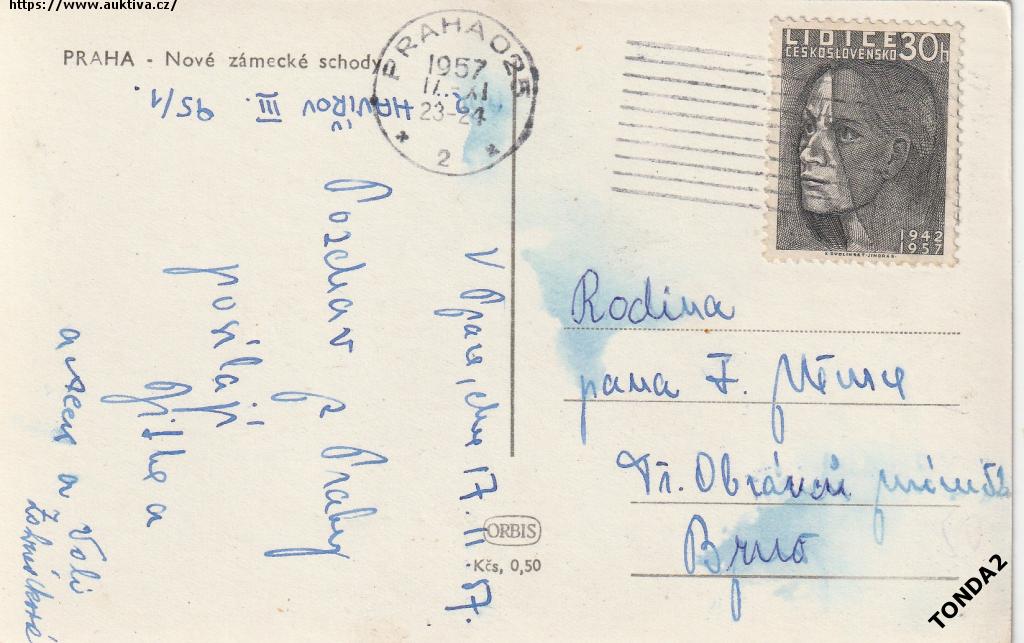 https://www.auktiva.cz/
PRAHA - Nové zámecké schody
HAVÍŘOV III. 95/1.
PRAHA 025
1957
23-24
2
LIDICE 30h
ČESKOSLOVENSKO
1942
1957
V Praze, dne 17.11.57.
Pozdrav z Prahy
posílají
Jitka a
Rodina
pana F.
Tř. Obránců míru
Brno
ORBIS
Kčs, 0,50
TONDA2